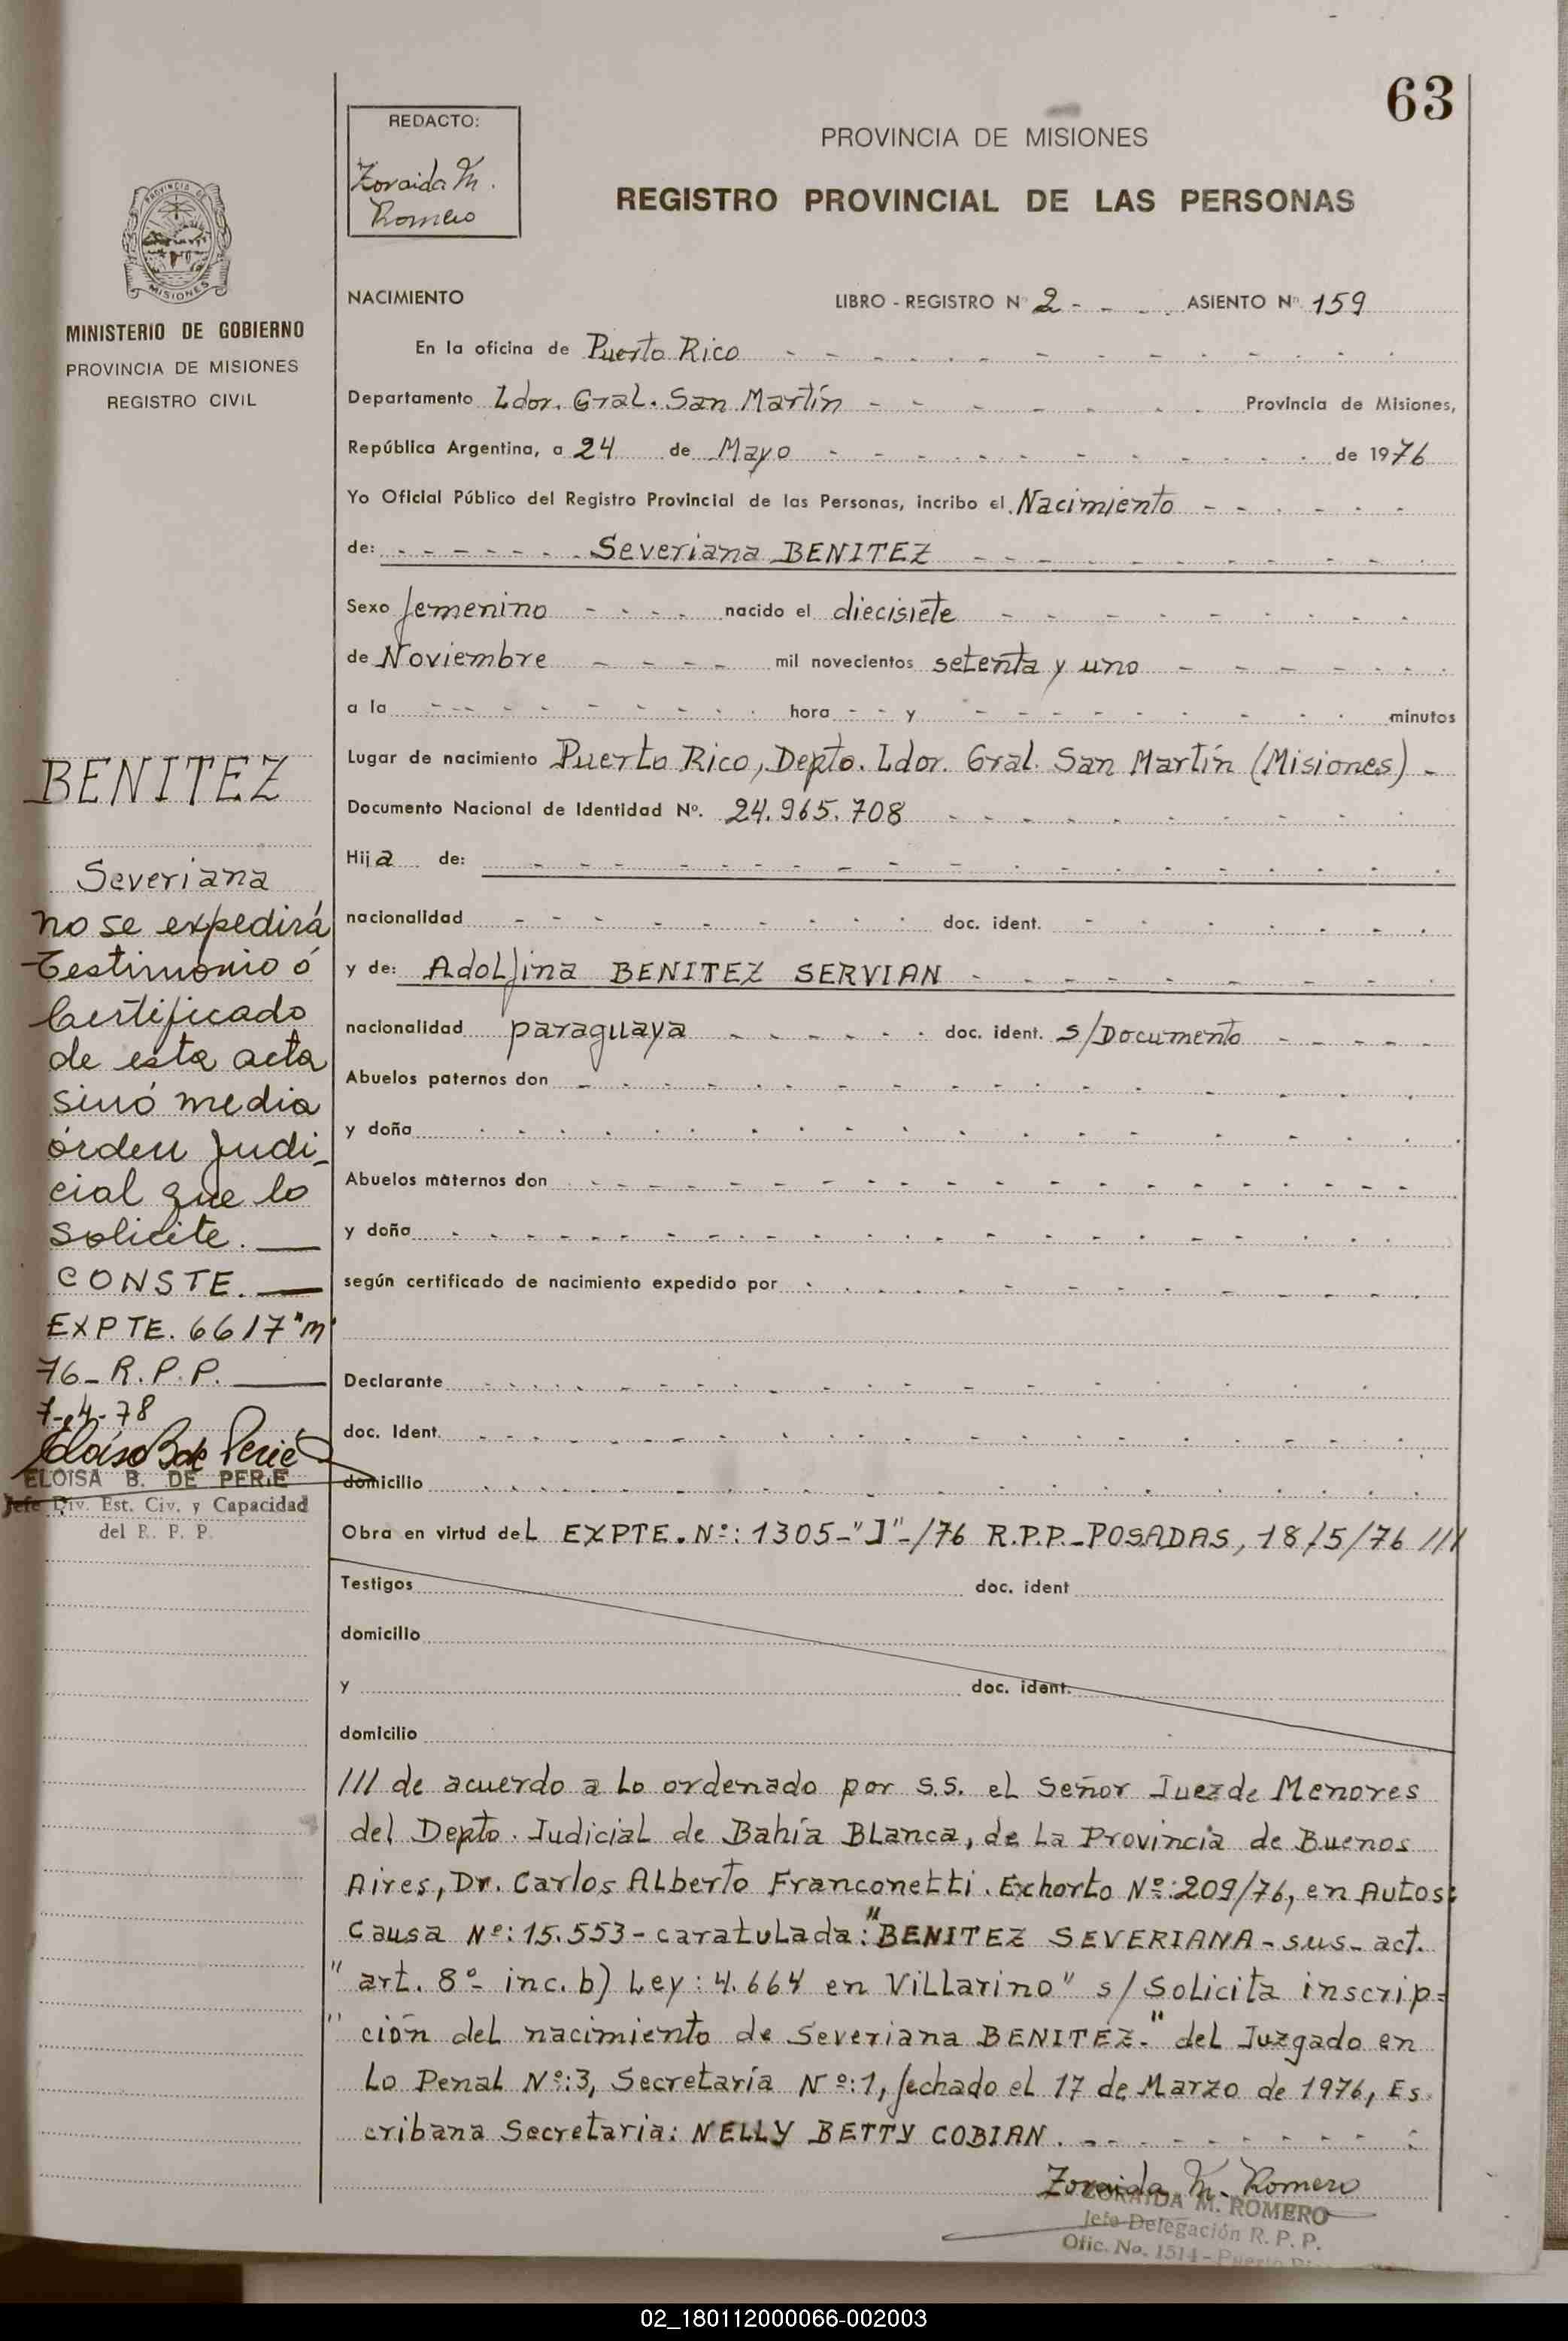 63
REDACTO:
Zoraida M.
Romero
PROVINCIA DE MISIONES
REGISTRO PROVINCIAL DE LAS PERSONAS
PROVINCIA DE
MISIONES
MINISTERIO DE GOBIERNO
PROVINCIA DE MISIONES
REGISTRO CIVIL
NACIMIENTO LIBRO - REGISTRO Nº 2 - - . - ASIENTO Nº 159
En la oficina de Puerto Rico
Departamento Ldor. Gral. San Martín Provincia de Misiones,
República Argentina, a 24 de Mayo de 1976
Yo Oficial Público del Registro Provincial de las Personas, incribo el Nacimiento
de: Severiana BENITEZ
Sexo femenino nacido el diecisiete
de Noviembre mil novecientos setenta y uno
a la hora y minutos
Lugar de nacimiento Puerto Rico, Depto. Ldor. Gral. San Martín (Misiones) -
Documento Nacional de Identidad Nº. 24.965.708
Hija de:
nacionalidad doc. ident.
y de: Adolfina BENITEZ SERVIAN
nacionalidad paraguaya doc. ident. s/Documento
Abuelos paternos don
y doña
Abuelos maternos don
y doña
según certificado de nacimiento expedido por
Declarante
doc. Ident.
domicilio
Obra en virtud del EXPTE. Nº: 1305-"J"-/76 R.P.P.-POSADAS, 18/5/76 ///
Testigos doc. ident
domicilio
y doc. ident.
domicilio
/// de acuerdo a lo ordenado por S.S. el Señor Juez de Menores
del Depto. Judicial de Bahía Blanca, de la Provincia de Buenos
Aires, Dr. Carlos Alberto Franconetti. Exhorto Nº: 209/76, en Autos:
Causa Nº: 15.553 - caratulada: "BENITEZ SEVERIANA - sus- act.
" art. 8º- inc. b) Ley: 4.664 en Villarino" s/ Solicita inscrip=
" ción del nacimiento de Severiana BENITEZ-" del Juzgado en
Lo Penal Nº: 3, Secretaría Nº: 1, fechado el 17 de Marzo de 1976, Es
cribana Secretaria: NELLY BETTY COBIAN.
Zoraida M. Romero
ZORAIDA M. ROMERO
Jefe Delegación R. P. P.
Ofic. No. 1514 - Puerto
BENITEZ
Severiana
no se expedirá
testimonio ó
Certificado
de esta acta
sinó media
órden Judi-
cial que lo
solicite.
CONSTE.
EXPTE. 6617 "m"
76- R.P.P.
7-4-78
Eloisa B de Perié
ELOISA B. DE PERIE
Jefe Div. Est. Civ. y Capacidad
del R. P. P.
02_180112000066-002003